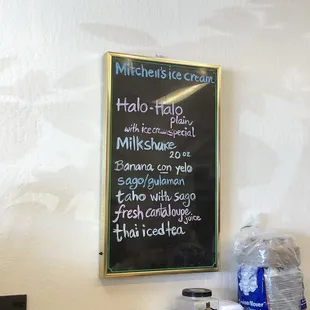 Mitchell's ice cream
Halo-Halo
plain
with ice cream special
Milkshake
20 oz
Banana con yelo
sago/gulaman
taho with sago
fresh cantaloupe
juice
thai iced tea